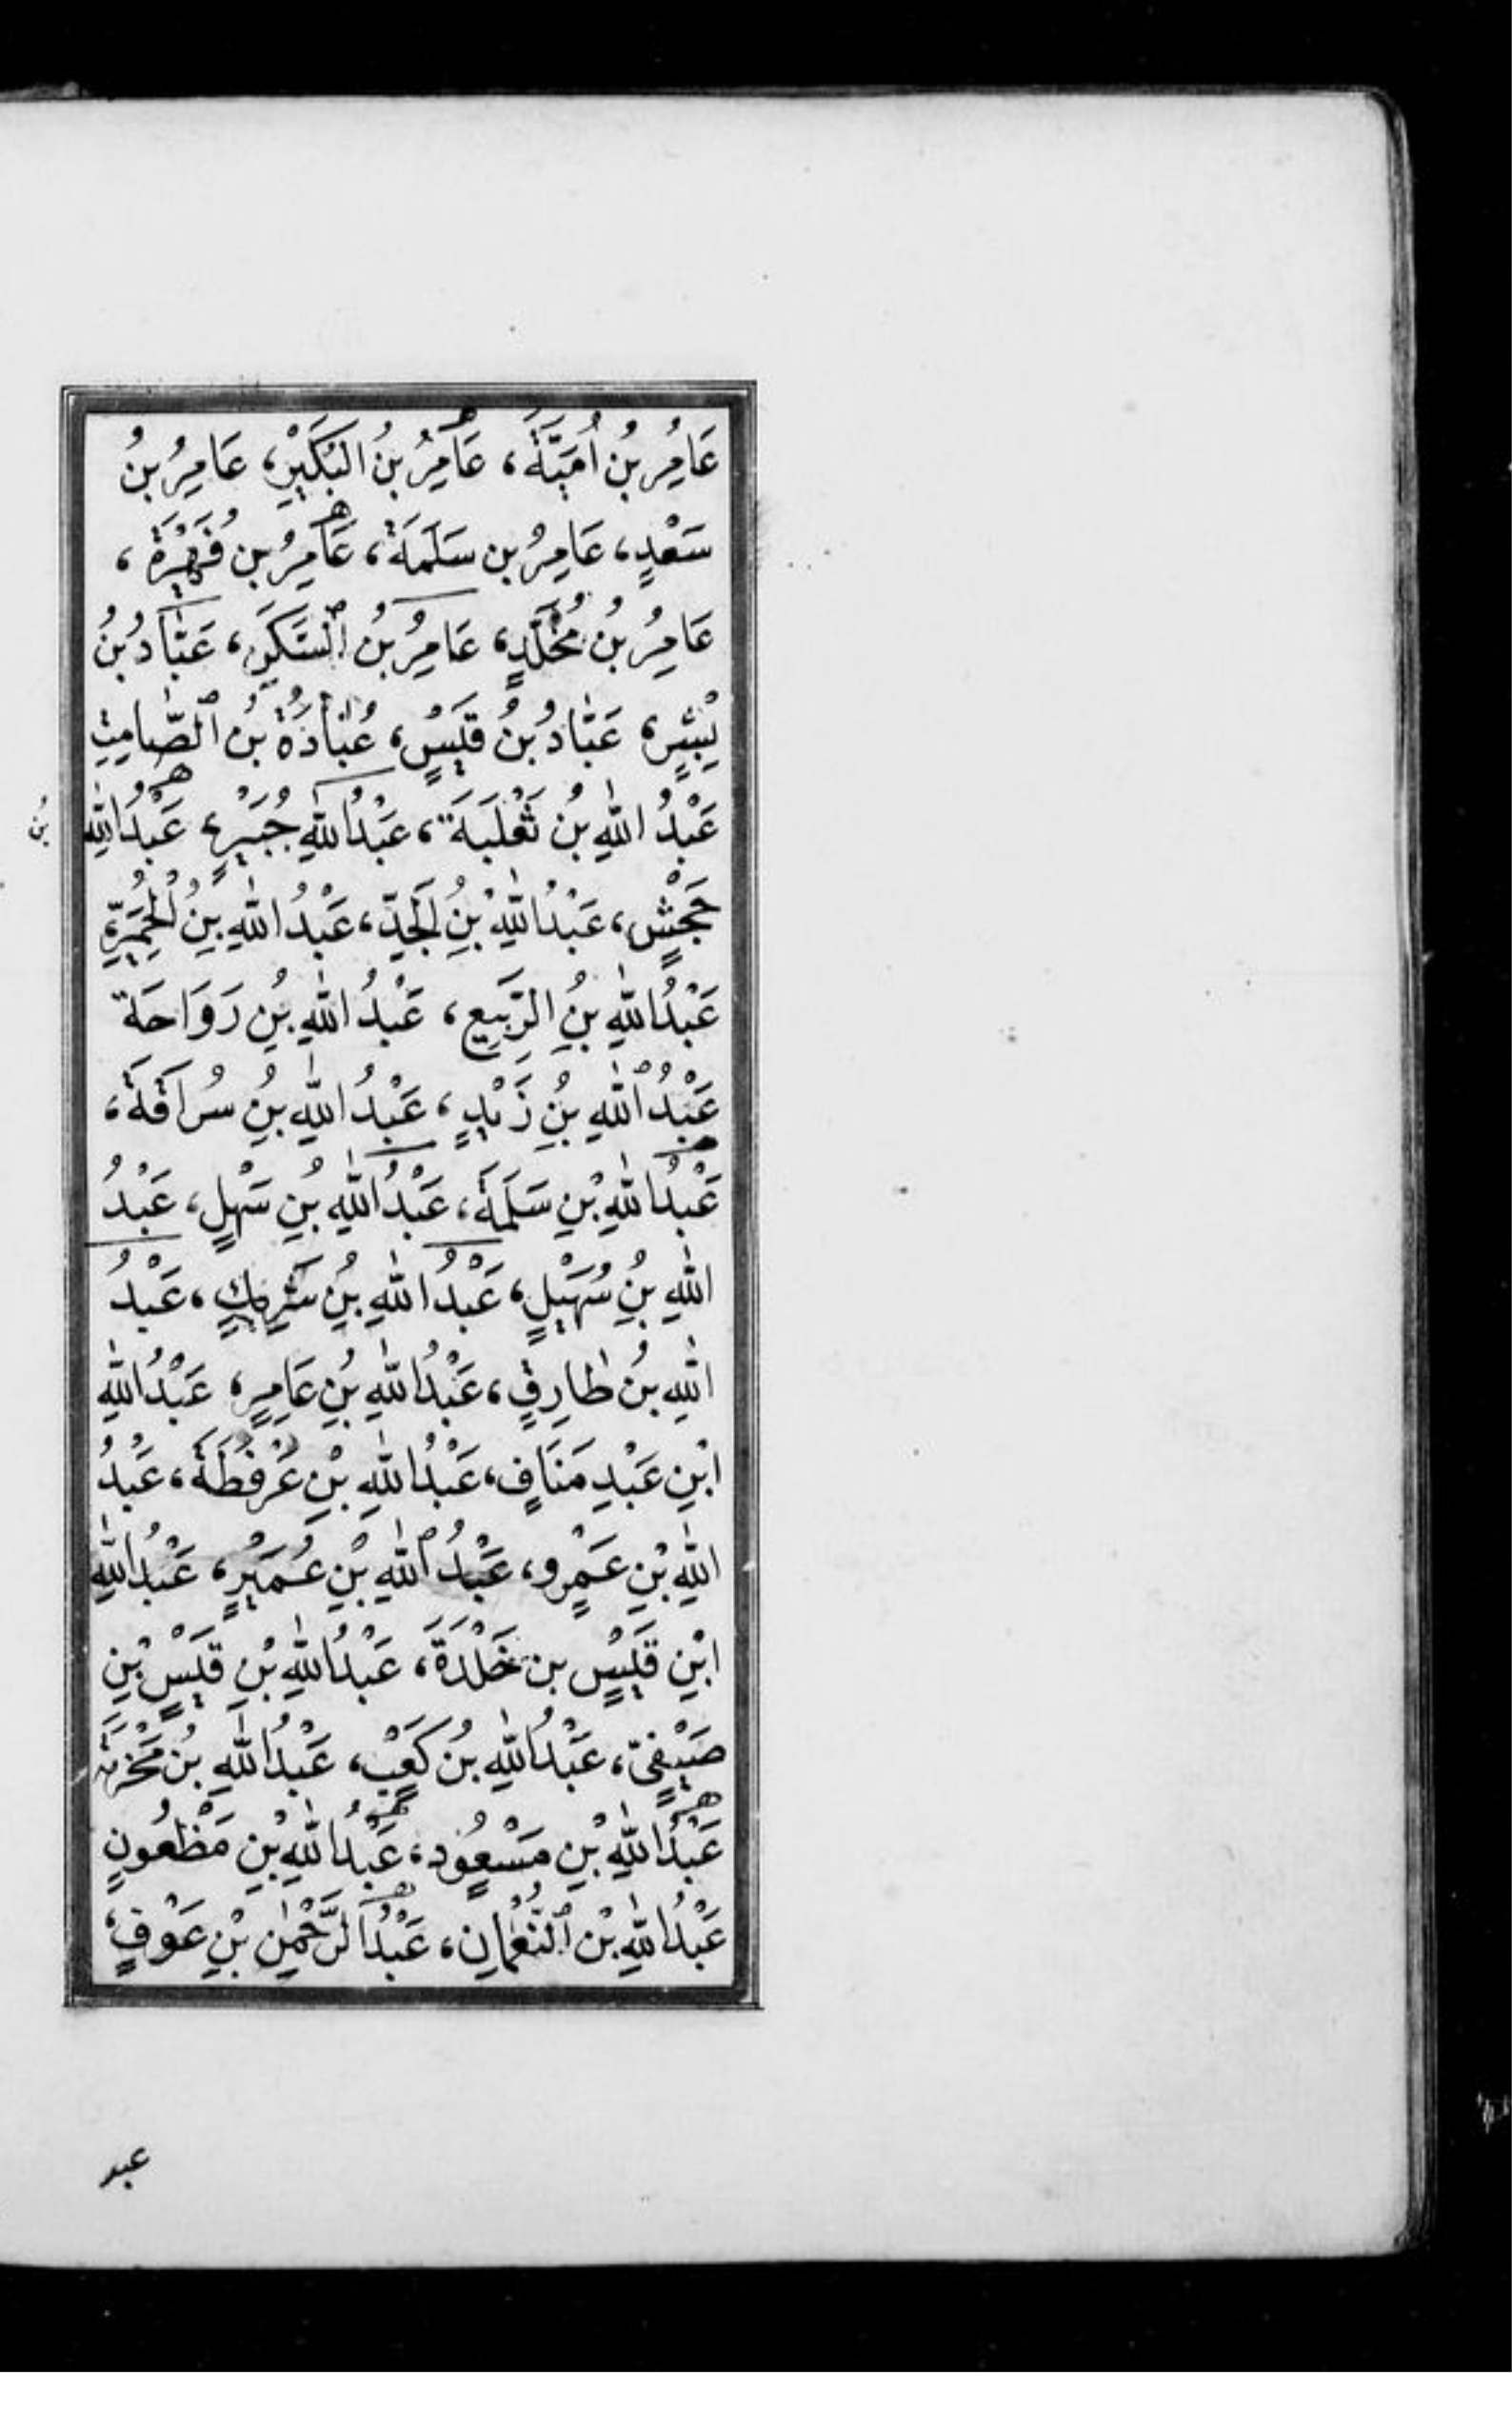 عَامِرُ بنُ اُمَيَّةَ، عَامِرُ بنُ البُكَيْرِ، عَامِرُ بنُ
سَعْدٍ، عَامِرُ بن سَلَمَةَ، عَامِرُ بن فُهَيْرَةَ،
عَامِرُ بنُ مُخَلَّدٍ، عَامِرُ بنُ السَّكَنِ، عَبَّادُ بنُ
بِشْرٍ، عَبَّادُ بنُ قَيْسٍ، عُبَادَةُ بنُ الصَّامِتِ
عَبْدُ اللهِ بنُ ثَعْلَبَةَ، عَبْدُ اللهِ جُبَيْرٍ، عَبْدُ اللهِ
بن
جَحْشٍ، عَبْدُ اللهِ بْنُ الجَدِّ، عَبْدُ اللهِ بنُ الحُمَيِّرِ
عَبْدُ اللهِ بنُ الرَّبِيعِ، عَبْدُ اللهِ بنِ رَوَاحَة
عَبْدُ اللهِ بنُ زَيْدٍ، عَبْدُ اللهِ بنُ سُرَاقَةَ،
عَبْدُ اللهِ بْنِ سَلَمَةَ، عَبْدُ اللهِ بنِ سَهْلٍ، عَبْدُ
اللهِ بنُ سُهَيْلٍ، عَبْدُ اللهِ بنُ شَرِيكٍ، عَبْدُ
اللهِ بنُ طَارِقٍ، عَبْدُ اللهِ بنِ عَامِرٍ، عَبْدُ اللهِ
ابْنِ عَبْدِ مَنَافٍ، عَبْدُ اللهِ بْنِ عُرْفُطَةَ، عَبْدُ
اللهِ بْنِ عَمْرٍو، عَبْدُ اللهِ بْنِ عُمَيْرٍ، عَبْدُ اللهِ
ابْنِ قَيْسٍ بن خَلْدَةَ، عَبْدُ اللهِ بْنِ قَيْسٍ بْنِ
صَيْفِيٍّ، عَبْدُ اللهِ بنُ كَعْبٍ، عَبْدُ اللهِ بْنُ مَخْرَمَة
عَبْدُ اللهِ بْنِ مَسْعُودٍ، عَبْدُ اللهِ بْنِ مَظْعُونٍ
عَبْدُ اللهِ بْنُ النُّعْمَانِ، عَبْدُ الرَّحْمٰنِ بْنِ عَوْفٍ،
عبد